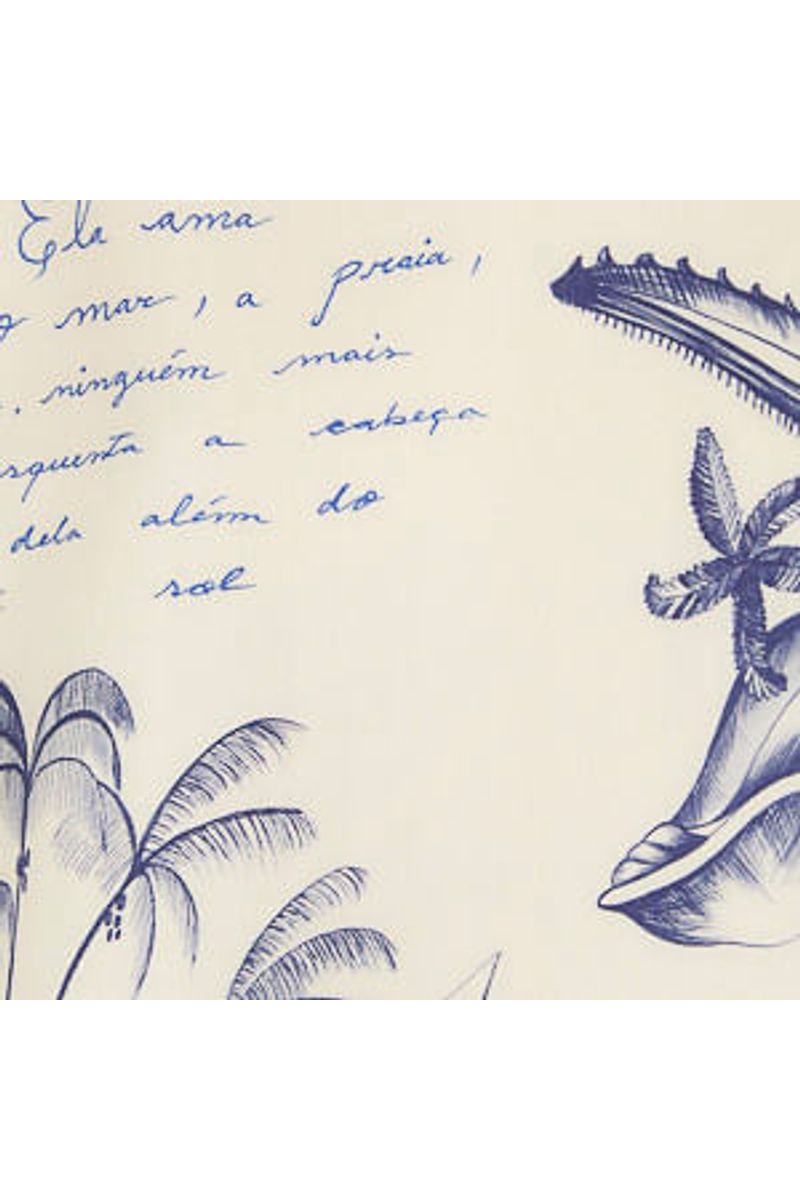 Ela ama
o mar, a praia,
. ninguém mais
esquenta a cabeça
dela além do
sol